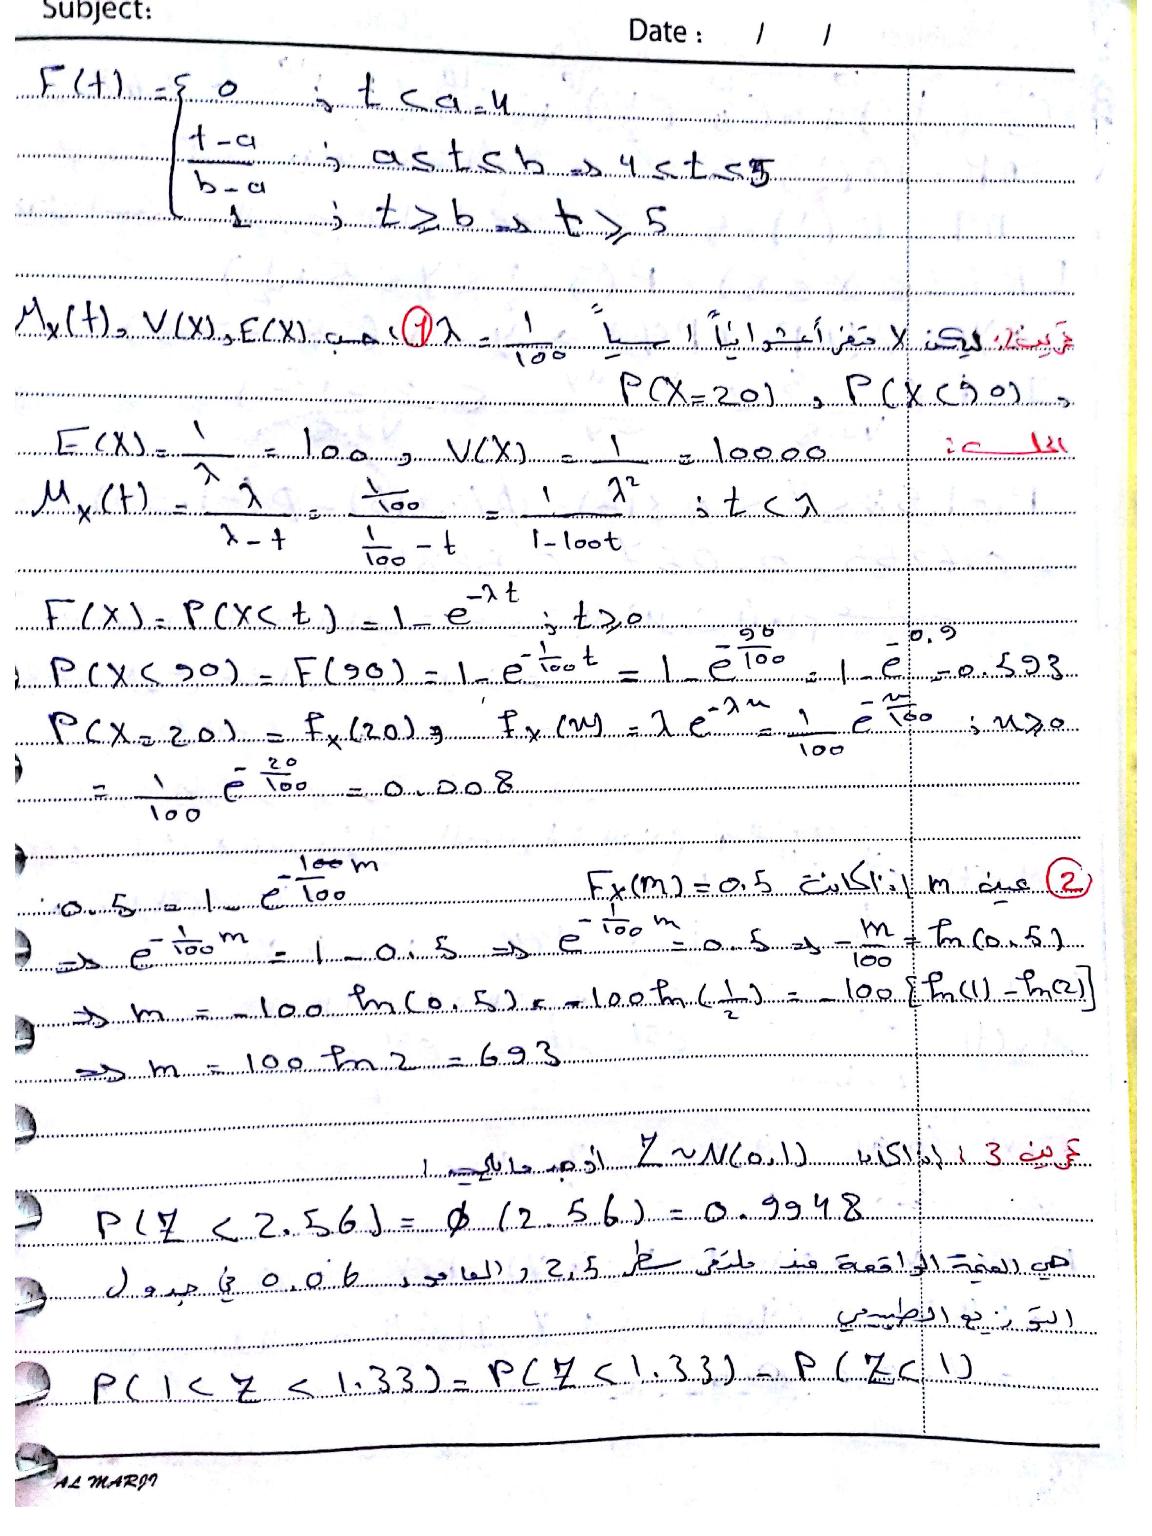 Subject:
Date : / /
F(t) = { 0 ; t < a = 4
t-a / b-a ; a ≤ t ≤ b ⇒ 4 ≤ t ≤ 5
1 ; t ≥ b ⇒ t ≥ 5
تمرين 2: ليكن X متغيراً عشوائياً أسياً λ = 1/100 ① احسب M_X(t), V(X), E(X)
و P(X<90) , P(X=20)
الحل:
E(X) = 1/λ = 100 , V(X) = 1/λ² = 10000
M_X(t) = λ/(λ-t) = (1/100)/(1/100 - t) = 1/(1-100t) ; t < λ
F(X) = P(X<t) = 1 - e^{-λt} ; t ≥ 0
P(X<90) = F(90) = 1 - e^{-1/100 t} = 1 - e^{-90/100} = 1 - e^{-0.9} = 0.593
P(X=20) = f_X(20) , f_X(x) = λ e^{-λx} = 1/100 e^{-x/100} ; x ≥ 0
= 1/100 e^{-20/100} = 0.008
② عين m إذا كانت F_X(m) = 0.5
0.5 = 1 - e^{-m/100}
⇒ e^{-1/100 m} = 1 - 0.5 ⇒ e^{-1/100 m} = 0.5 ⇒ -m/100 = ln(0.5)
⇒ m = -100 ln(0.5) = -100 ln(1/2) = -100 [ln(1) - ln(2)]
⇒ m = 100 ln 2 = 693
تمرين 3: إذا كان Z ~ N(0,1) أوجد مايلي:
P(Z < 2.56) = Ø(2.56) = 0.9948
هي القيمة الواقعة عند ملتقى سطر 2,5 والعامود 0.06 في جدول
التوزيع الطبيعي
P(1 < Z < 1.33) = P(Z < 1.33) - P(Z < 1)
AL MARJI